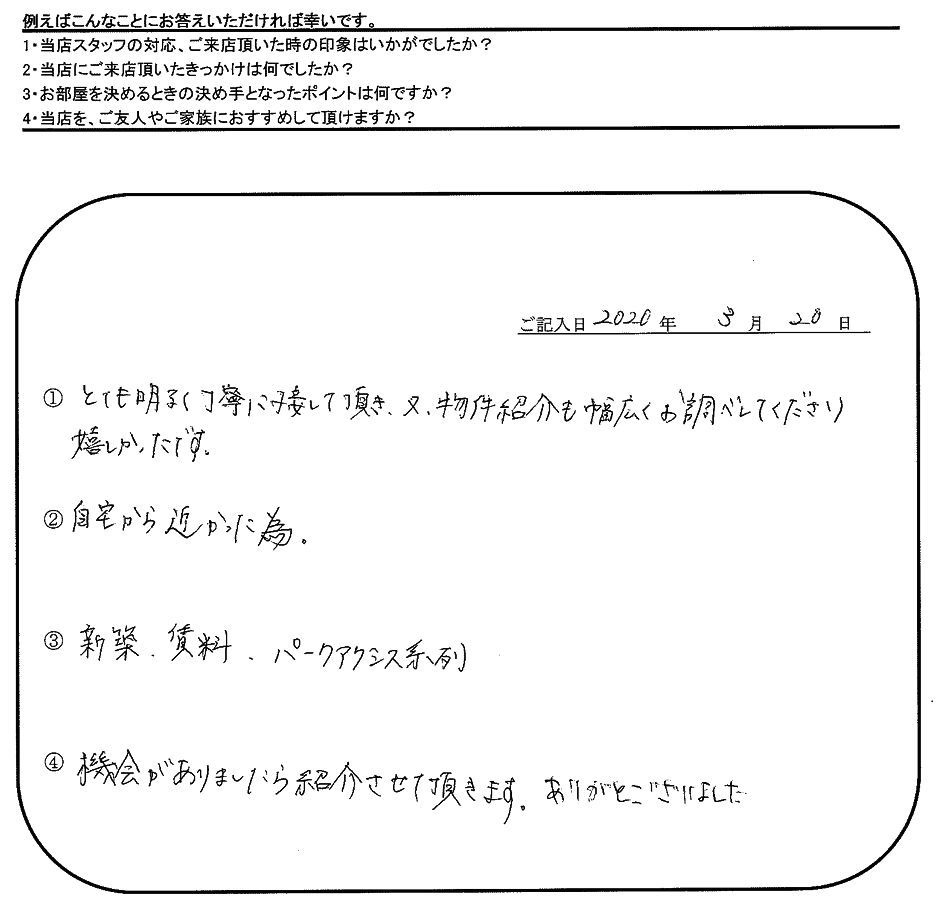 例えばこんなことにお答えいただければ幸いです。
1・当店スタッフの対応、ご来店頂いた時の印象はいかがでしたか？
2・当店にご来店頂いたきっかけは何でしたか？
3・お部屋を決めるときの決め手となったポイントは何ですか？
4・当店を、ご友人やご家族におすすめして頂けますか？
ご記入日 2020 年 3 月 28 日
① とても明るく丁寧に接して頂き、又、物件紹介も幅広くお調べしてくださり
嬉しかったです。
② 自宅から近かった為。
③ 新築、賃料、パークアクシス系列
④ 機会がありましたら紹介させて頂きます。ありがとうございました